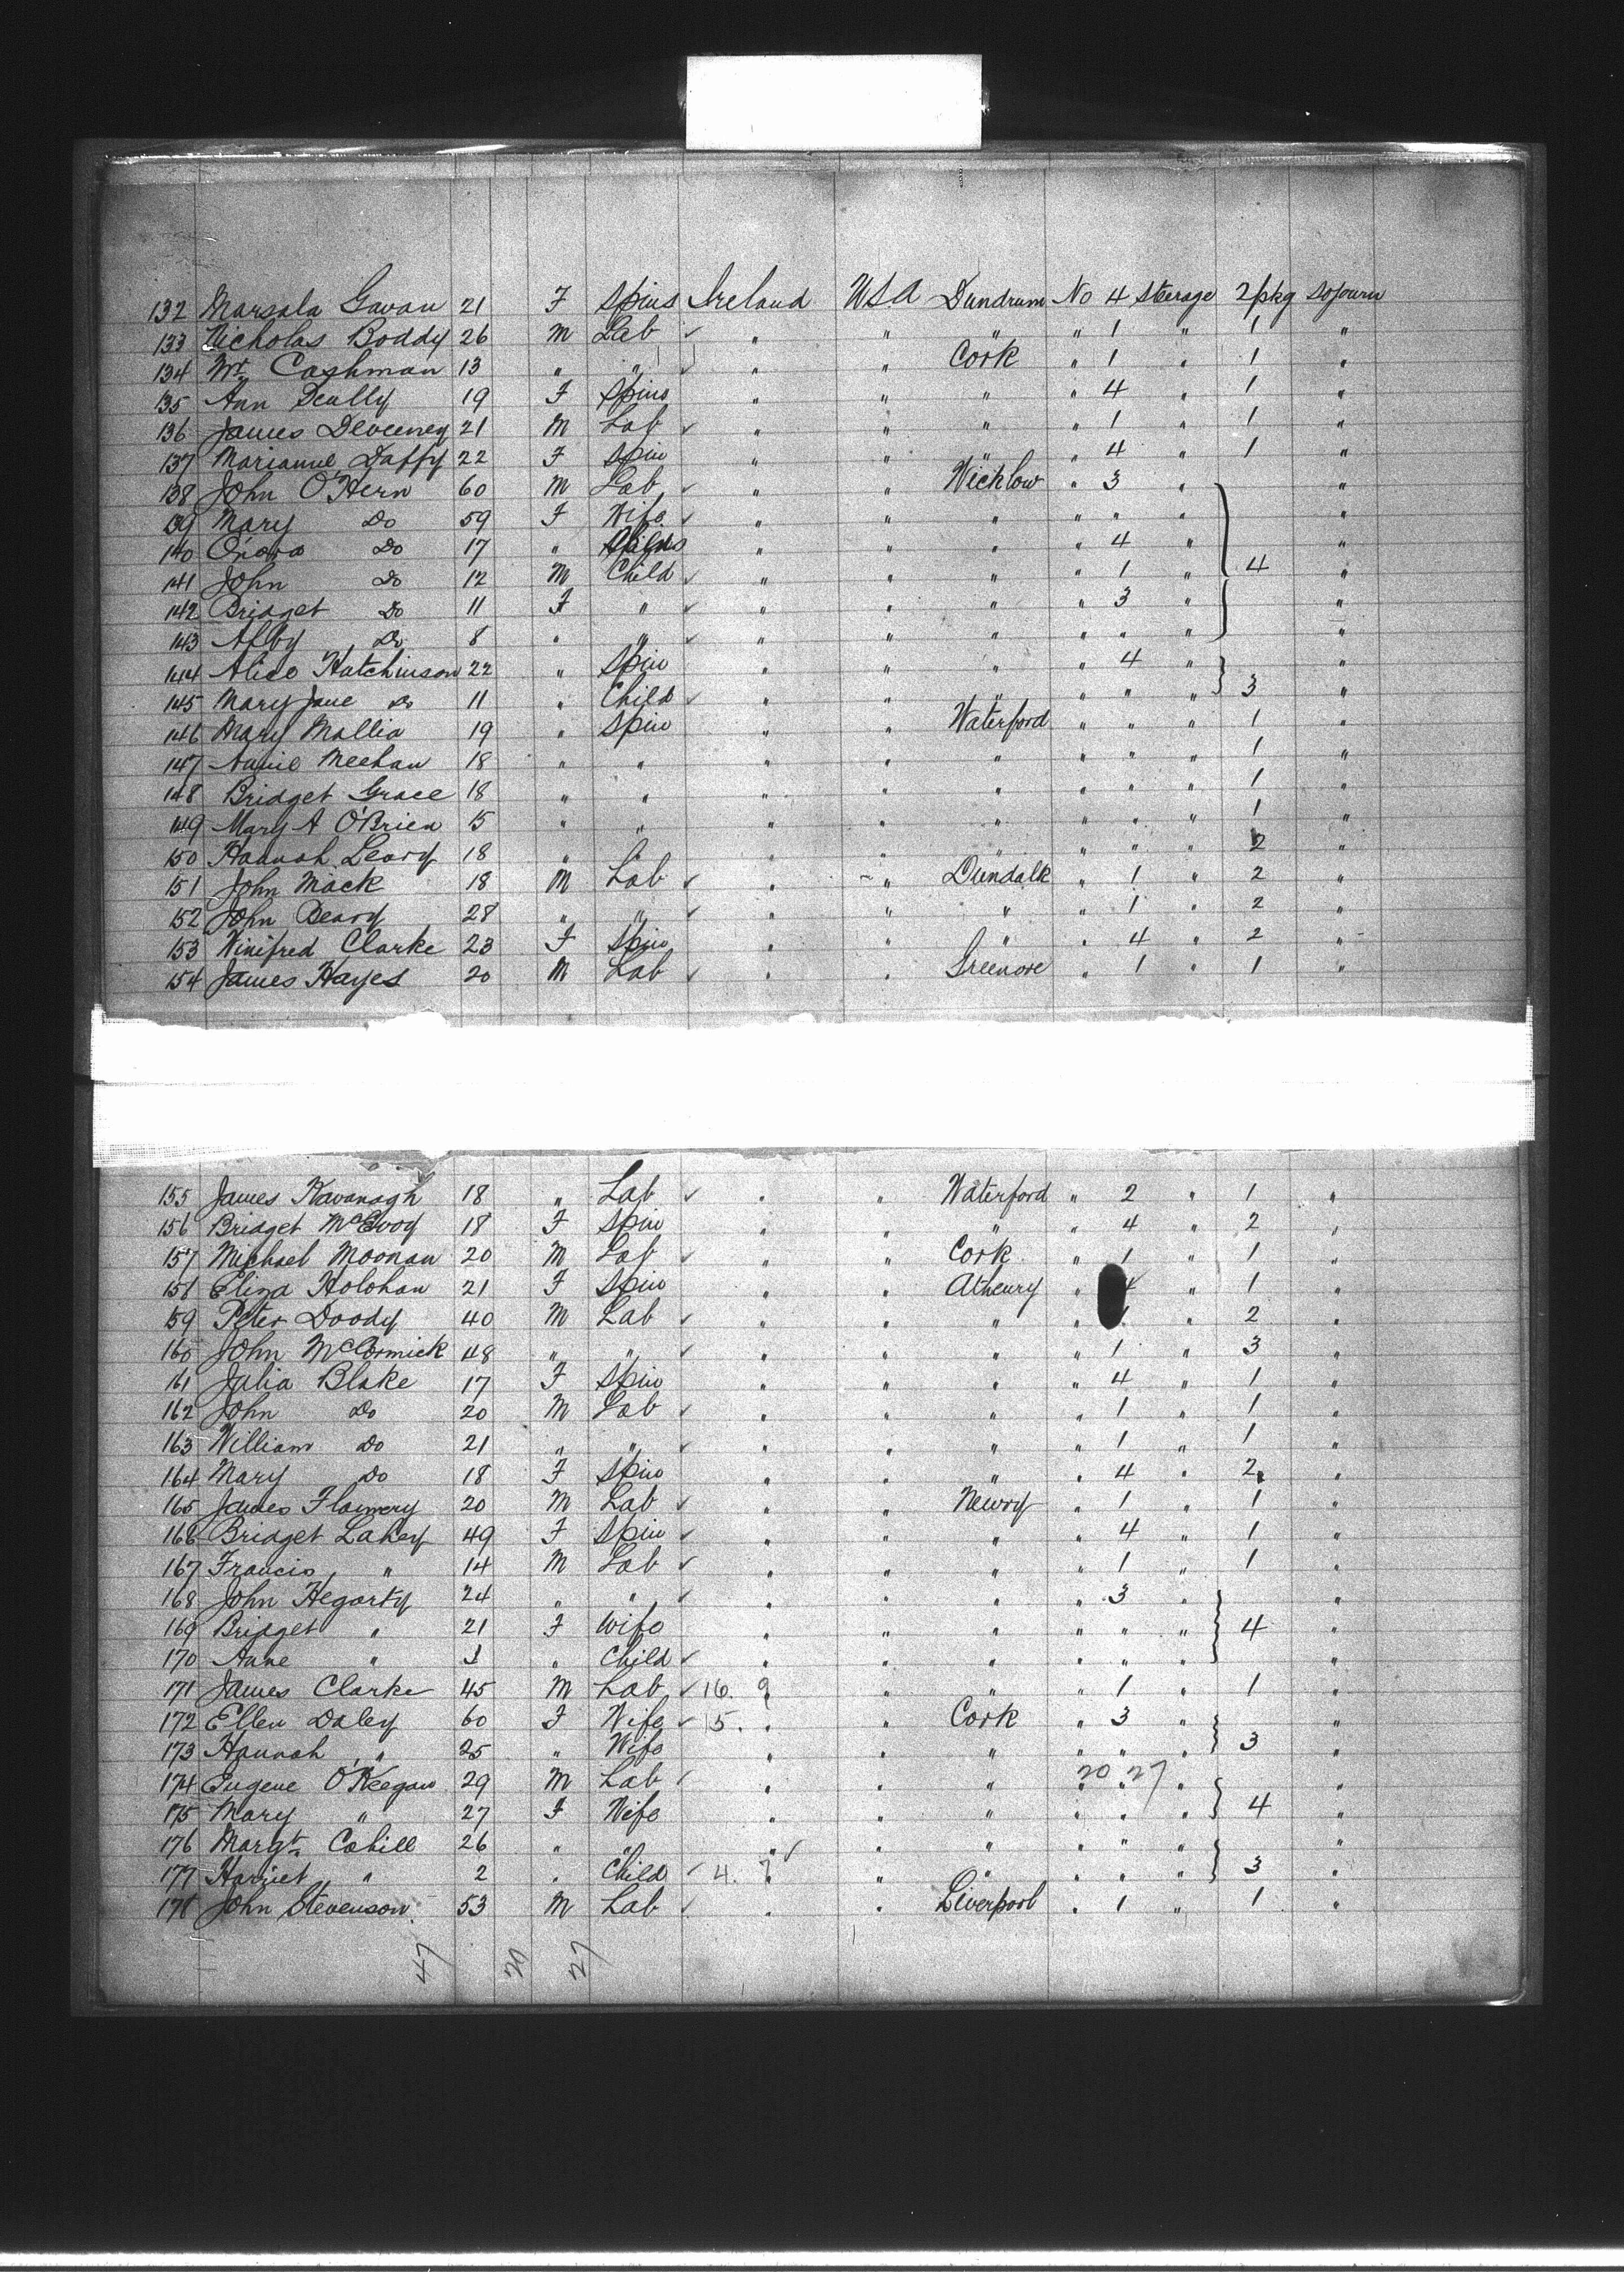 132 Marsala Gavan 21 F Spins Ireland USA Dundrum No 4 Steerage 2 pkg Sojourn
133 Nicholas Boddy 26 M Lab ✓ " " " " 1 " 1 "
134 Wm Cashman 13 " " ✓ " " Cork " 1 " 1 "
135 Ann Scully 19 F Spins " " " " 4 " 1 "
136 James Deveeney 21 M Lab ✓ " " " " 1 " 1 "
137 Marianne Daffy 22 F Spin " " " " 4 " 1 "
138 John O'Hern 60 M Lab ✓ " " Wicklow " 3 " "
139 Mary Do 59 F Wife ✓ " " " " " " "
140 Onora Do 17 " Spins " " " " 4 " "
141 John Do 12 M Child ✓ " " " " 1 " 4 "
142 Bridget Do 11 F " ✓ " " " " 3 " "
143 Do 8 " " ✓ " " " " " " "
144 Alice Hutchinson 22 " Spin " " " " 4 " "
145 Mary Jane Do 11 " Child ✓ " " " " " " 3 "
146 Mary Mallia 19 " Spin " " Waterford " " " 1 "
147 Annie Meehan 18 " " " " " " " " 1 "
148 Bridget Grace 18 " " " " " " " " 1 "
149 Mary A O'Brien 15 " " " " " " " " 1 "
150 Hannah Leary 18 " " " " " " " " 2 "
151 John Mack 18 M Lab ✓ " " Dundalk " 1 " 2 "
152 John Beary 28 " " ✓ " " " " 1 " 2 "
153 Winifred Clarke 23 F Spin " " " " 4 " 2 "
154 James Hayes 20 M Lab ✓ " " Greenore " 1 " 1 "
155 James Kavanagh 18 " Lab ✓ " " Waterford " 2 " 1 "
156 Bridget McEvoy 18 F Spin " " " " 4 " 2 "
157 Michael Moonan 20 M Lab ✓ " " Cork " 1 " 1 "
158 Eliza Holohan 21 F Spin " " Athenry " 4 " 1 "
159 Peter Doody 40 M Lab ✓ " " " " 1 " 2 "
160 John McCormick 48 " " ✓ " " " " 1 " 3 "
161 Julia Blake 17 F Spin " " " " 4 " 1 "
162 John Do 20 M Lab ✓ " " " " 1 " 1 "
163 William Do 21 " " ✓ " " " " 1 " 1 "
164 Mary Do 18 F Spin " " " " 4 " 2 "
165 James Flannery 20 M Lab ✓ " " Newry " 1 " 1 "
166 Bridget Lahey 49 F Spin ✓ " " " " 4 " 1 "
167 Francis " 14 M Lab ✓ " " " " 1 " 1 "
168 John Hegarty 24 " " ✓ " " " " 3 " "
169 Bridget " 21 F Wife " " " " " " 4 "
170 Anne " " Child ✓ " " " " " " "
171 James Clarke 45 M Lab ✓ 16. 9 " " " 1 " 1 "
172 Ellen Daley 60 F Wife ✓ 5. " " Cork " 3 " "
173 Hannah " 25 " Wife " " " " " " 3 "
174 Eugene O'Keegan 29 M Lab ✓ " " " 20 27 "
175 Mary " 27 F Wife " " " " " " 4 "
176 Margt. Cahill 26 " " " ✓ " " " " " "
177 Harriet " 2 " Child ✓ 4. 7 " " " " " 3 "
178 John Stevenson 53 M Lab ✓ " " Liverpool " 1 " 1 "
47 20 27